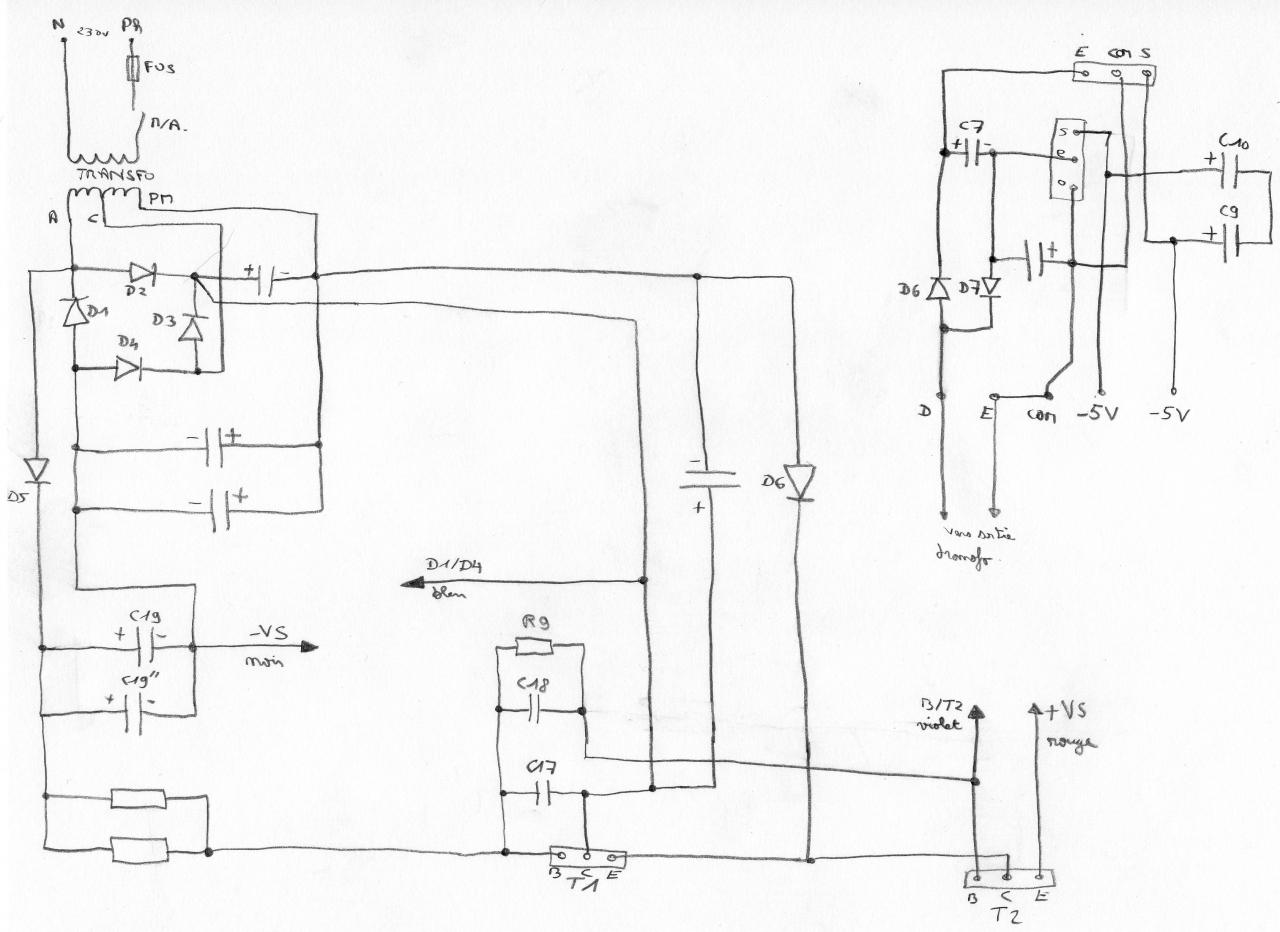 N 230V Ph
FUS
M/A.
TRANSFO
A C PM
+ -
D2
D1
D3
D4
- +
- +
D5
D1/D4
bleu
C19
+ -
-VS
noir
C19"
+ -
R9
C18
C17
B C E
T1
-
+
D6
B/T2
violet
+VS
rouge
B C E
T2
E com S
C7
+ -
S
e
0
C10
+
C9
+
+
D6 D7
D E com -5V -5V
vers sortie
transfo.